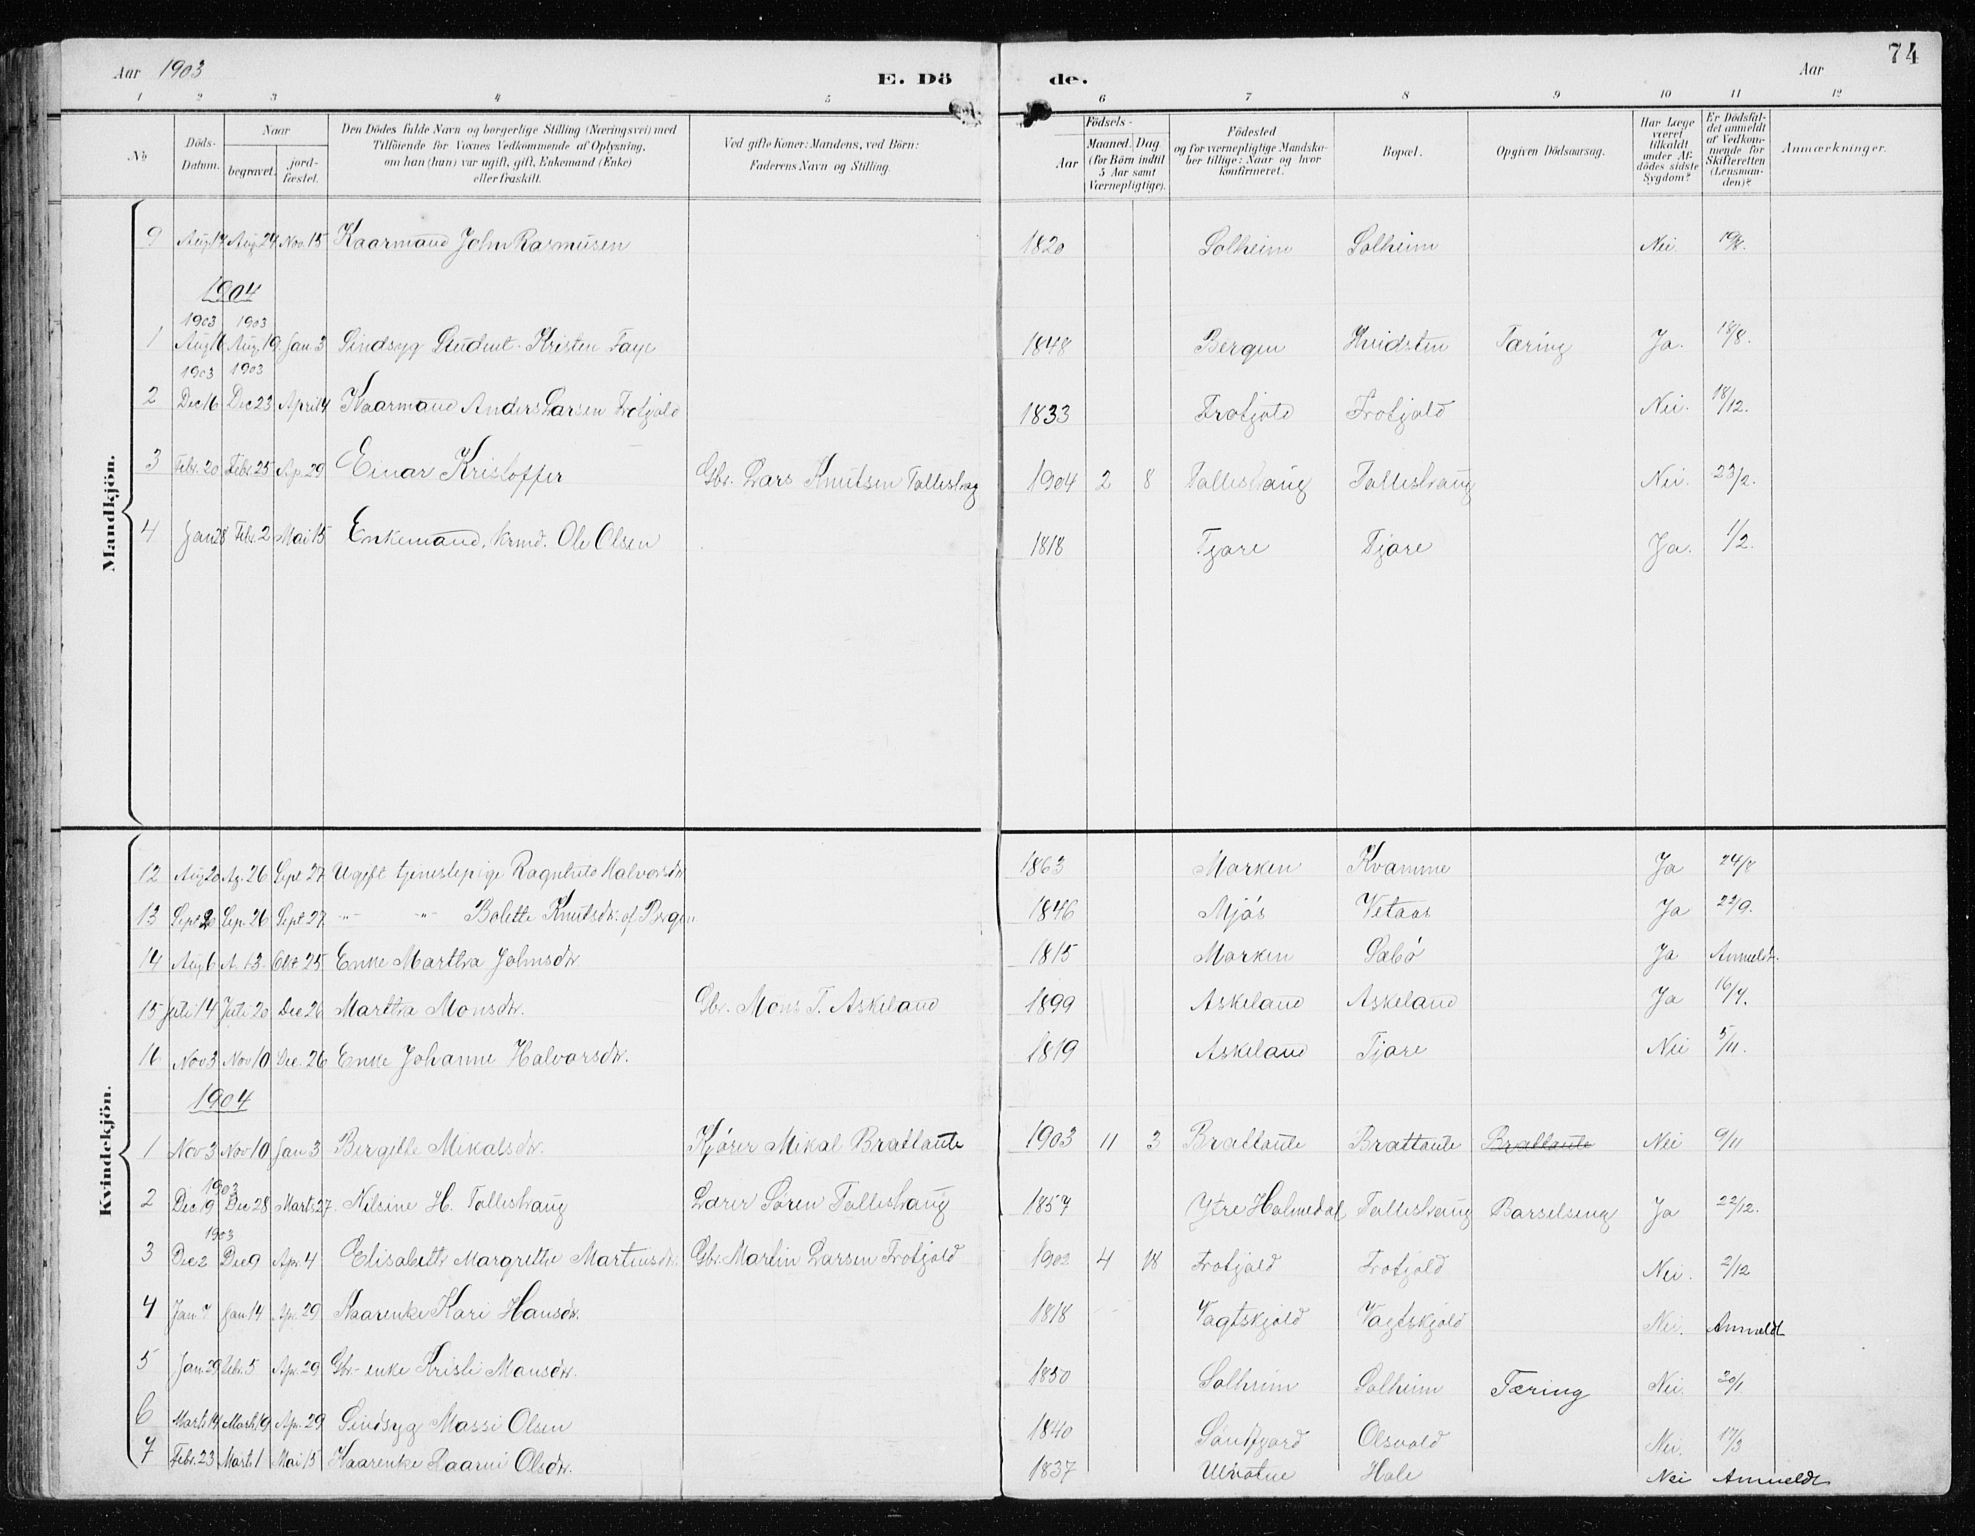 Aar 1903 E. Dö de. Aar 74
1 2 3 4 5 6 7 8 9 10 11 12
No
Döds-Datum.
Naar
begravet.
jord-fæstet.
Den Dödes fulde Navn og borgerlige Stilling (Næringsvei) med
Tilföiende for Voxnes Vedkommende af Oplysning,
om han (hun) var ugift, gift, Enkemand (Enke)
eller fraskilt.
Ved gifte Koner: Mandens, ved Börn:
Faderens Navn og Stilling.
Födsels-
Aar
Maaned. Dag
(for Börn indtil
5 Aar samt
Værnepligtige).
Födested
og for værnepligtige Mandska-
ber tillige: Naar og hvor
konfirmeret.
Bopæl.
Opgiven Dödsaarsag.
Har Læge
været
tilkaldt
under Af-
dödes sidste
Sygdom?
Er Dödsfal-
det anmeldt
af Vedkom-
mende for
Skifteretten
(Lensman-
den)?
Anmærkninger.
Mandkjön.
9 Aug 17 Aug 24 Nov. 15 Kaarmand John Rasmusen 1820 Solheim Solheim Nei. 19/8.
1904
1903 1903
1 Aug 16 Aug. 19 Jan 3 Sindsyg Student Kristen Faye 1848 Bergen Hvidsten Tæring Ja. 18/8.
1903 1903
2 Dec 16 Dec 23 April 4 Kaarmand Anders Larsen Frotjold 1833 Frotjold Frotjold Nei. 18/12.
3 Febr. 20 Febr. 25 Ap. 29 Einar Kristoffer Gbr. Lars Knutsen Tolleshaug 1904 2 8 Tolleshaug Tolleshaug Nei. 23/2.
4 Jan 28 Febr. 2 Mai 15 Enkemand, krmd. Ole Olsen 1818 Tjore Tjore Ja. 1/2.
Kvindekjön.
12 Aug 20 Ag. 26 Sept 27 Ugift tjenestepige Ragnhild Halvorsdtr 1863 Marken Kvamme Ja 24/8
13 Sept 20 Sep. 26 Sept 27. -"- -"- Bolette Knutsdtr. af Bergen 1846 Mjøs Vetaas Ja 22/9.
14 Aug 6 A. 13. Okt 25 Enke Martha Johnsdtr 1815 Marken Sæbø Ja Anmeldt.
15 Juli 14 Juli 20 Dec 26 Martha Monsdtr. Gbr. Mons T. Askeland 1899 Askeland Askeland Ja 16/7.
16 Nov 3 Nov 10 Dec. 26 Enke Johanne Halvorsdtr. 1819 Askeland Tjore Nei 5/11.
1904
1 Nov 3 Nov 10 Jan 3 Bergitte Mikalsdtr. Kjører Mikal Brattaule 1903 11 3 Brattaule Brattaule Brattaule Nei 9/11
1903
2 Dec 19 Dec 28 Marts 27. Nilsine H. Tolleshaug Lærer Søren Tolleshaug 1857 Ytre Holmedal Tolleshaug Barselseng Ja 22/12.
1903
3 Dec 2 Dec 9 Apr. 4 Elisabeth Margrethe Martinsdtr. Gbr. Martin Larsen Frotjold 1902 4 18 Frotjold Frotjold Nei. 2/12
4 Jan. 7 Jan 14 Ap. 29 Kaarenke Kari Hansdtr. 1818 Vagtskjold Vagtskjold Nei. Anmeldt
5 Jan. 29 Febr. 5 Apr. 29 Gbr-enke Kristi Monsdtr. 1850 Solheim Solheim Tæring Nei. 30/1
6 Marts 14 Marts 19 Ap. 29 Sindsyg Massi Olsen 1840 Sandfjord Olsvold Nei. 17/3
7 Febr. 23 Marts 1 Mai 15 Kaarenke Kaarni Olsdtr. 1837 Hole Nei Anmeldt